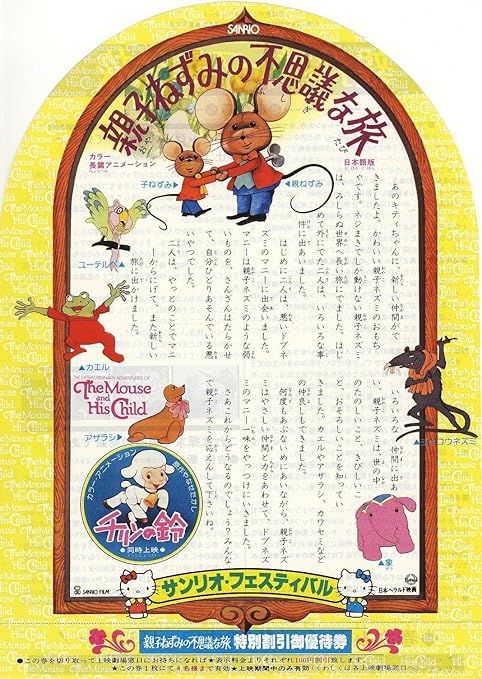 SANRIO
親子ねずみの不思議な旅
おやこ
ふしぎ
たび
カラー
長篇アニメーション
日本語版
子ねずみ▶
◀親ねずみ
あのキティちゃんに、新しい仲間がで
きましたよ。かわいい親子ネズミのおもち
ゃです。ネジまきでしか動けない親子ネズミ
は、みしらぬ世界へ長い旅にでました。はじ
めて外にでた二人は、いろいろな事
件に出あいました。
はじめに二人は、悪いドブネ
ズミのマニーに出会いました。
マニーは親子ネズミのような弱
いものを、さんざんはたらかせ
て、自分ひとりあそんでいる悪
いやつでした。
二人は、やっとのことでマニ
ーからにげて、また新しい
旅に出かけました。
ユーテルペ▲
▲カエル
THE EXTRAORDINARY ADVENTURES OF
The Mouse
and
His Child
アザラシ▶
▲ジャコウネズミ
いろいろな仲間に出あ
い、親子ネズミは、世の中
のたのしいこと、きびしいこ
と、おそろしいことを知ってい
きました。カエルやアザラシ、カワセミなど
の仲良しもできました。
何度もあぶないめにあいながら、親子ネズ
ミはやさしい仲間と力をあわせて、ドブネズ
ミのマニー一味をやっつけにいきました。
さあこれからどうなるのでしょう？みんな
で親子ネズミを応えんして下さいね。
カラー・アニメーション
原作やなせたかし
チリンの鈴
●同時上映●
▲象
SANRIO FILM
サンリオ・フェスティバル
日本ヘラルド映画
親子ねずみの不思議な旅 特別割引御優待券
●この券を切り取って上映劇場窓口にお持ちになれば★表示料金よりそれぞれ100円割引致します。
★この券1枚にて4名様まで有効★上映期間中のみ有効(くわしくは各上映劇場窓口へ)